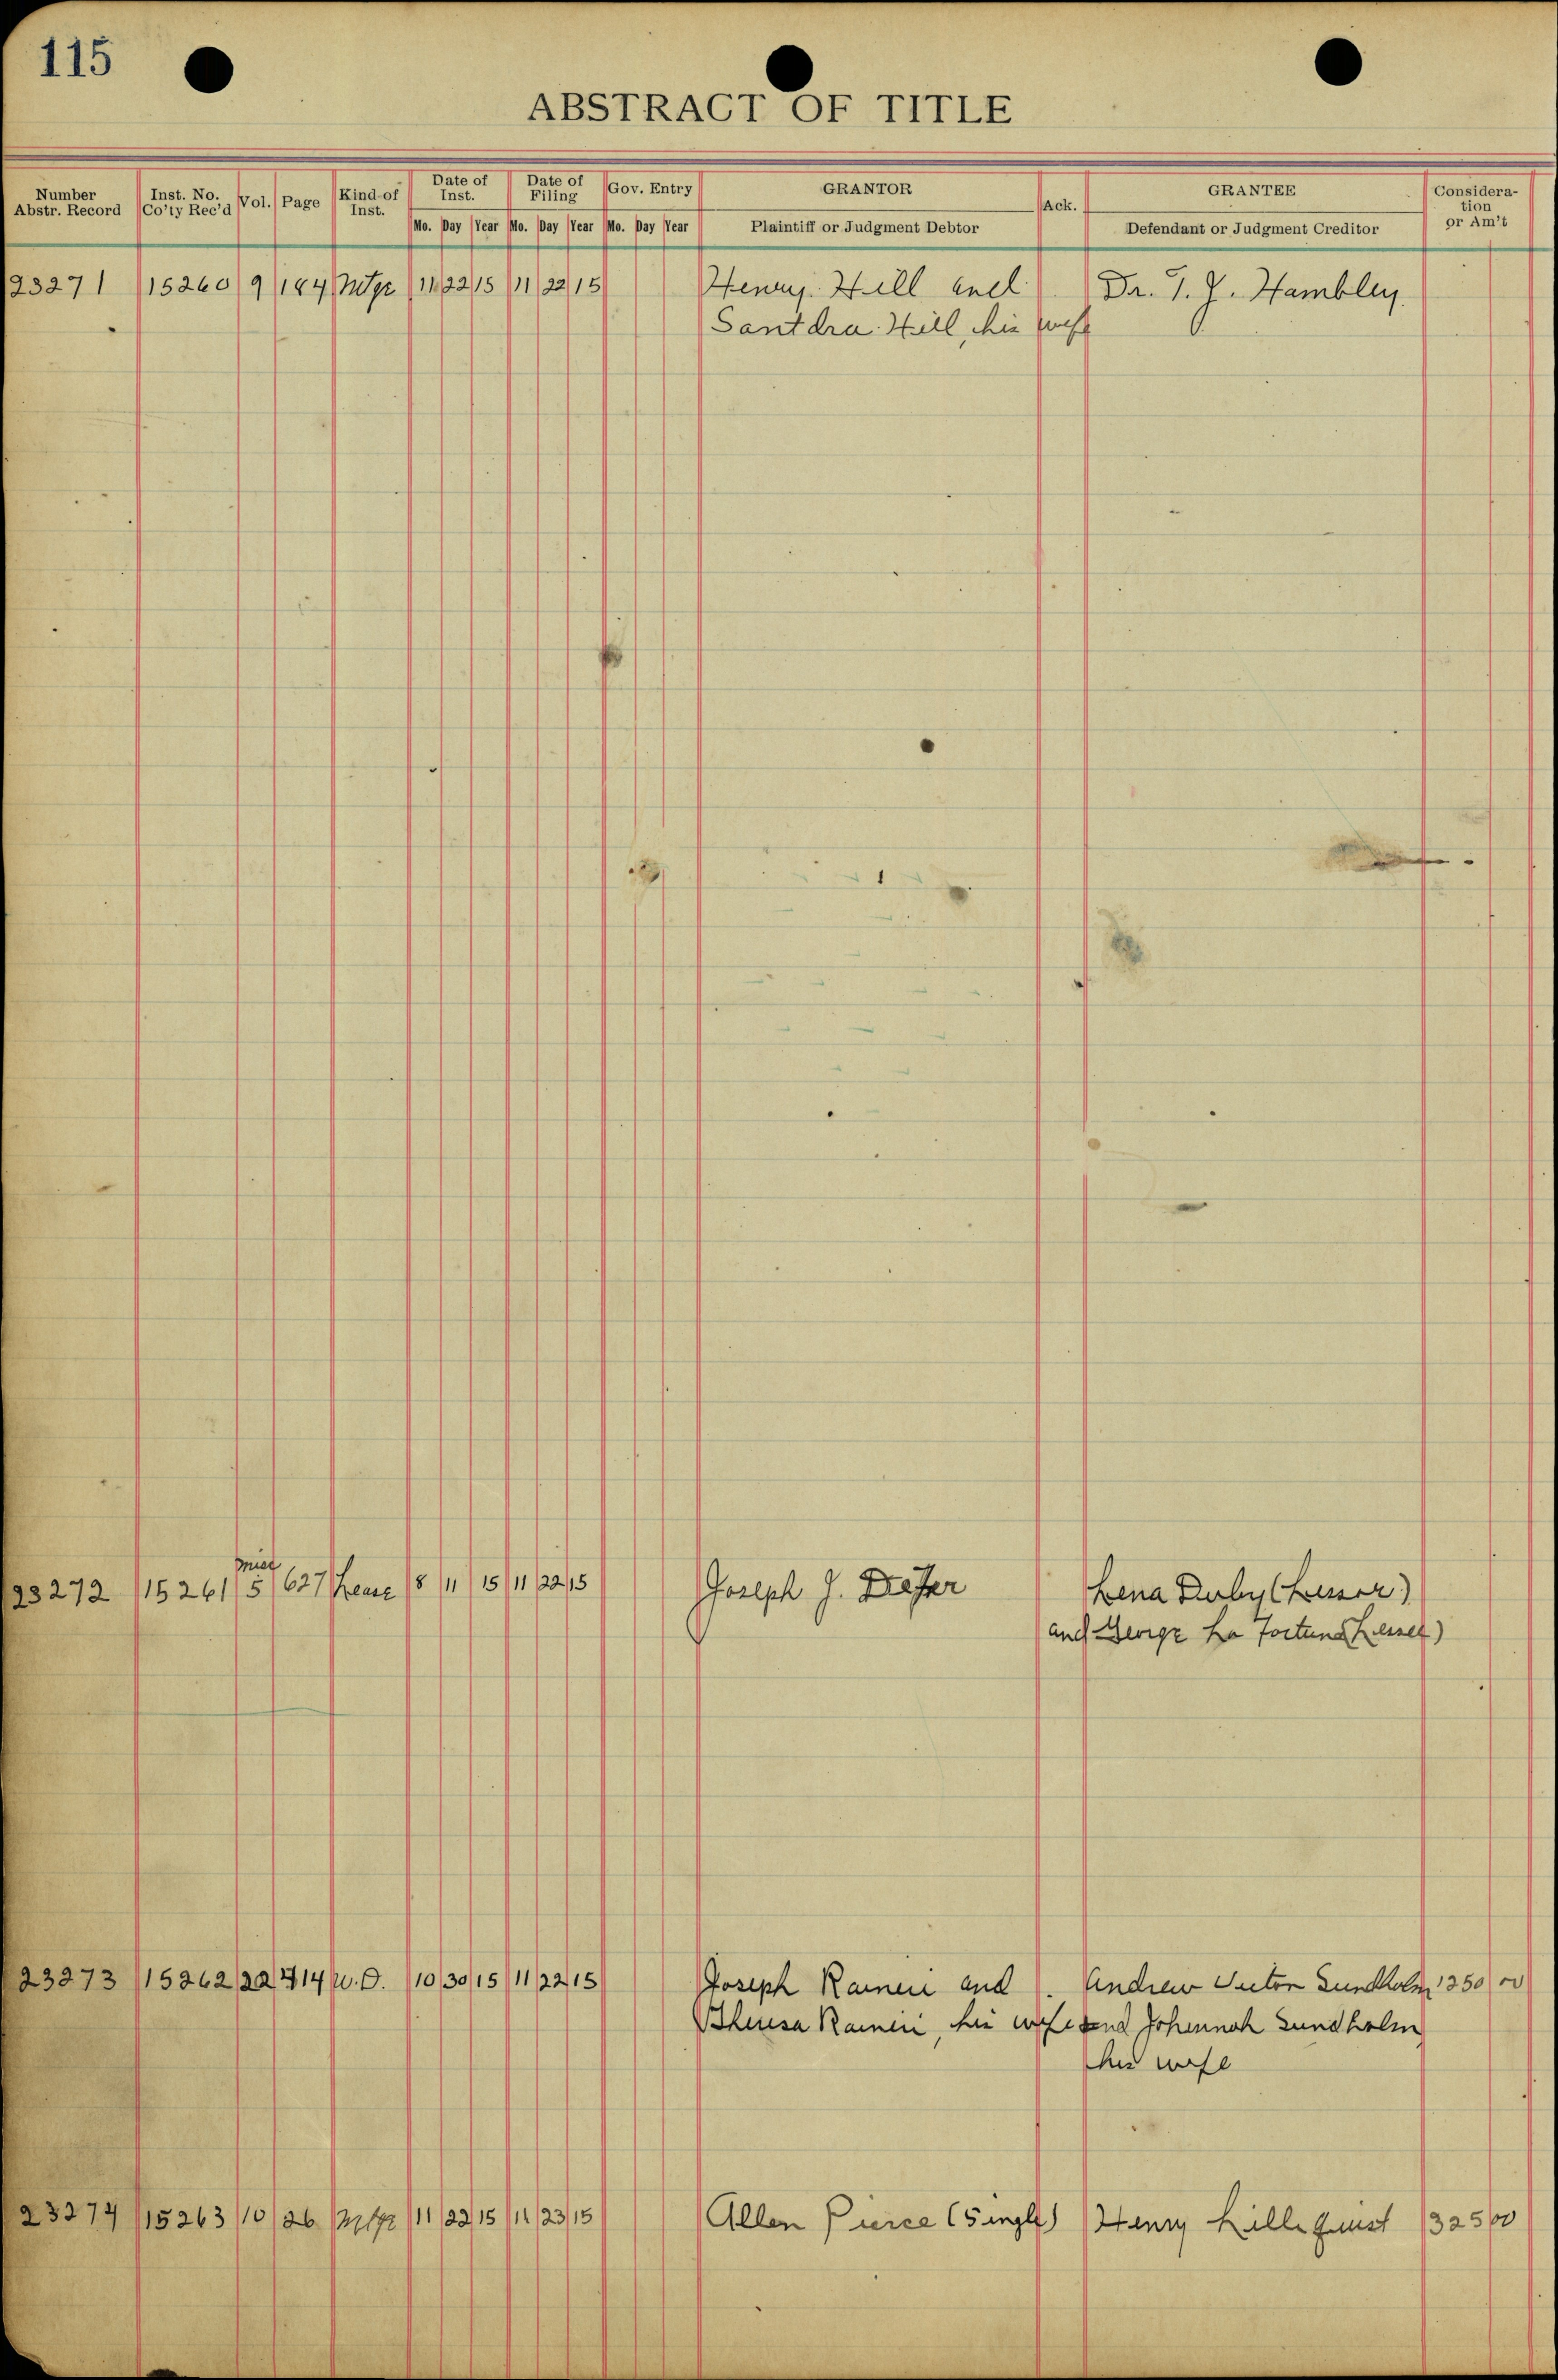 115
ABSTRACT OF TITLE
Number Abstr. Record | Inst. No. Co'ty Rec'd | Vol. | Page | Kind of Inst. | Date of Inst. | Date of Filing | Gov. Entry | GRANTOR | Ack. | GRANTEE | Consideration or Am't
Mo. Day Year Mo. Day Year Mo. Day Year | Plaintiff or Judgment Debtor | Defendant or Judgment Creditor
23271 15260 9 184 Mtge 11 22 15 11 22 15 Henry Hill and Dr. T. J. Hambley
Santdra Hill, his wife
Misc
23272 15261 5 627 Lease 8 11 15 11 22 15 Joseph J. Lena Duby (Lessor)
and George La Fortune (Lessee)
23273 15262 22 414 W.D. 10 30 15 11 22 15 Joseph Raineri and Andrew Victor Sundholm 1250 00
Theresa Raineri, his wife and Johannah Sundholm
his wife
23274 15263 10 26 Mtge 11 22 15 11 23 15 Allen Pierce (Single) Henry Lillequist 325 00